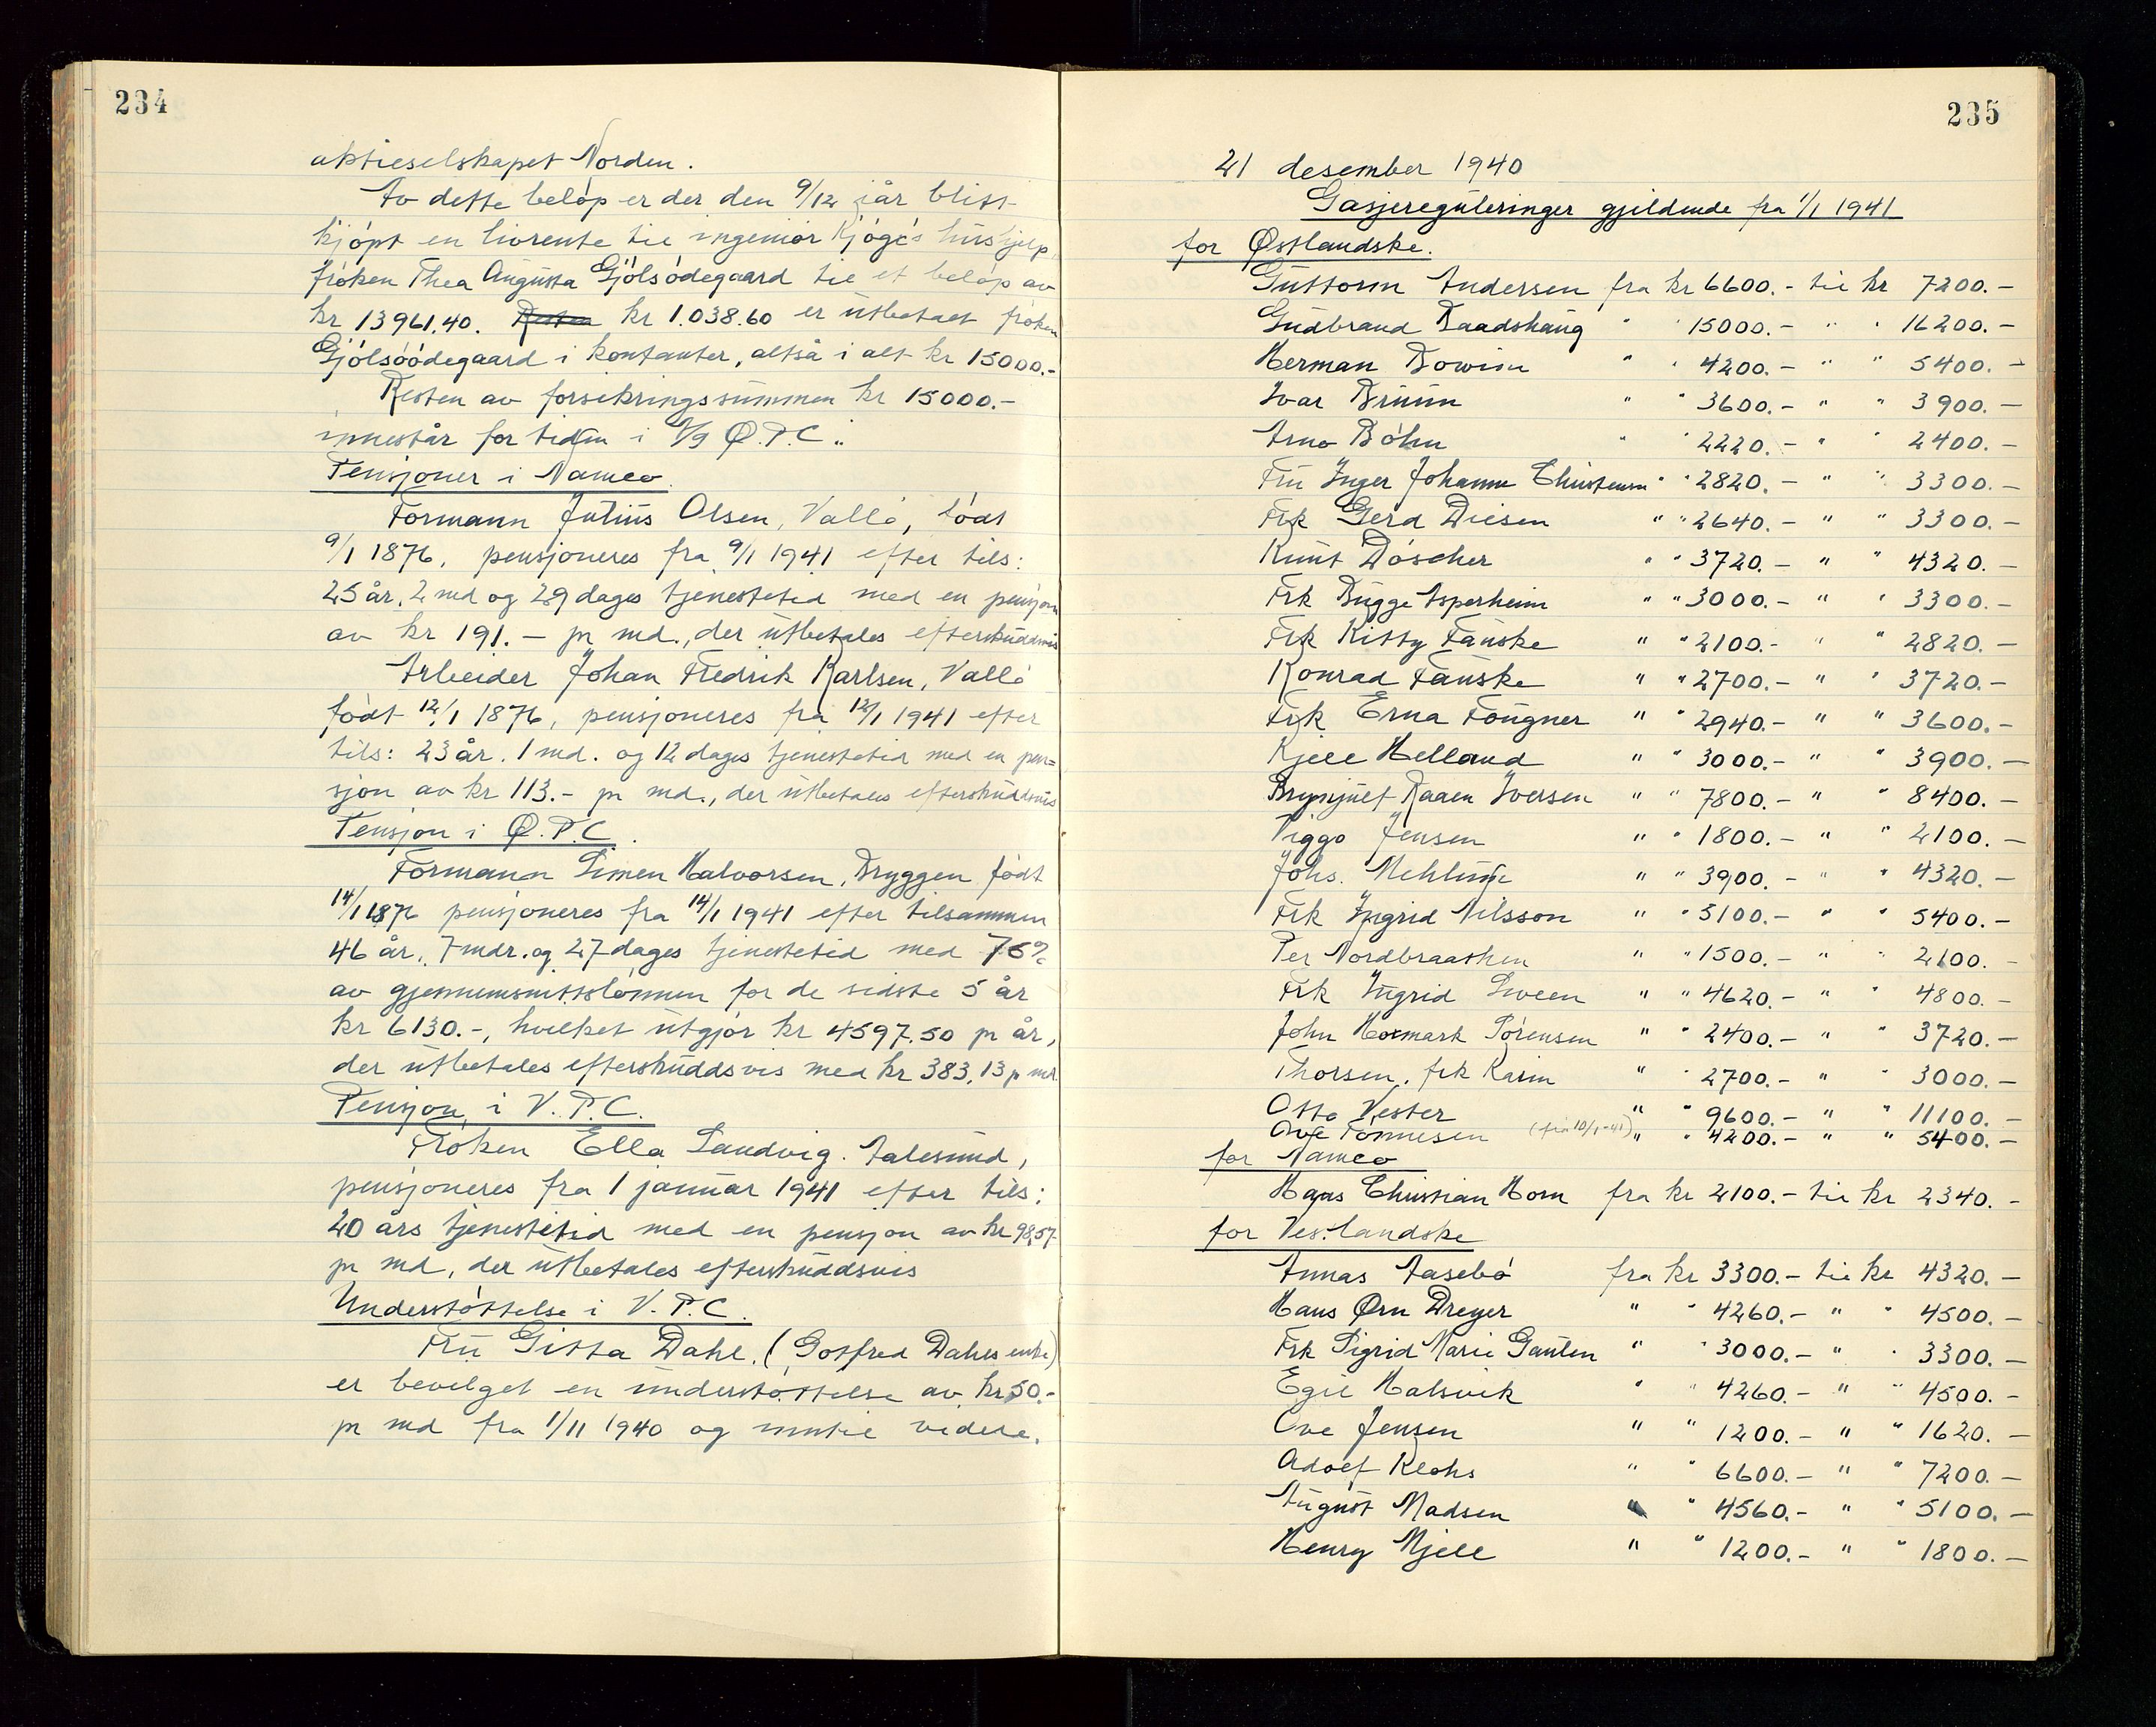 234
aktieselskapet Norden.
Av dette beløp er der den 9/12 iår blitt
kjøpt en livrente til ingeniør Kjøge's hushjelp,
frøken Thea Augusta Gjølsødegaard til et beløp av
kr 13961.40. Resten kr 1.038.60 er utbetalt frøken
Gjølsøødegaard i kontanter, altså i alt kr 15000.-
Resten av forsikringssummen kr 15000.-
innestår for tiden i A/S Ø.P.C.
Pensjoner i Nameo.
Formann Julius Olsen, Vallø, født
9/1 1876, pensjoneres fra 9/1 1941 efter tils:
25 år, 2 md og 29 dages tjenestetid med en pensjon
av kr 191.- pr md., der utbetales efterskuddsvis
Arbeider Johan Fredrik Karlsen, Vallø
født 12/1 1876, pensjoneres fra 12/1 1941 efter
tils: 23 år. 1 md. og 12 dages tjenestetid med en pen=
sjon av kr 113.- pr md., der utbetales efterskuddsvis
Pensjon i Ø.P.C.
Formann Simen Halvorsen, Bryggen født
14/1 1876 pensjoneres fra 14/1 1941 efter tilsammen
46 år, 7 mdr. og 27 dages tjenestetid med 75%
av gjennemsnittslønnen for de sidste 5 år
kr 6130.-, hvilket utgjør kr 4597.50 pr år,
der utbetales efterskuddsvis med kr 383,13 p md.
Pensjon i V.P.C.
Frøken Ella Sandvig. Aalesund,
pensjoneres fra 1 januar 1941 efter tils:
20 års tjenestetid med en pensjon av kr 98,57
pr md, der utbetales efterskuddsvis
Understøttelse i V.P.C.
Fru Gitta Dahl. (Gotfred Dahls enke)
er bevilget en understøttelse av kr 50.-
pr md fra 1/11 1940 og inntil videre.
235
21 desember 1940
Gasjereguleringer gjeldende fra 1/1 1941
for Østlandske.
Guttorm Andersen fra kr 6600.- til kr 7200.-
Gudbrand Baadshaug " " 15000.- " " 16200.-
Herman Bowim " " 4200.- " " 5400.-
Ivar Bruun " " 3600.- " " 3900.-
Arne Bøhn " " 2220.- " " 2400.-
Fru Inger Johanne Christensen " " 2820.- " " 3300.-
Frk Gerd Diesen " " 2640.- " " 3300.-
Knut Døscher " " 3720.- " " 4320.-
Frk Bugge Asperheim " " 3000.- " " 3300.-
Frk Kitty Fauske " " 2100.- " " 2820.-
Konrad Fauske " " 2700.- " " 3720.-
Frk Erna Fougner " " 2940.- " " 3600.-
Kjell Helland " " 3000.- " " 3900.-
Brynjulf Raaen Iversen " " 7800.- " " 8400.-
Viggo Jensen " " 1800.- " " 2100.-
Johs. Mehlum " " 3900.- " " 4320.-
Frk Ingrid Nilsson " " 5100.- " " 5400.-
Per Nordbraathen " " 1500.- " " 2100.-
Frk Ingrid Sveen " " 4620.- " " 4800.-
John Hoxmark Sørensen " " 2400.- " " 3720.-
Thorsen, frk Karin " " 2700.- " " 3000.-
Otto Vester " " 9600.- " " 11100.-
Ove Tønnesen (fra 10/1-41) " " 4200.- " " 5400.-
for Nameo
Hans Christian Horn fra kr 2100.- til kr 2340.-
for Vestlandske
Annas Aasebø fra kr 3300.- til kr 4320.-
Hans Ørn Dreyer " " 4260.- " " 4500.-
Frk Sigrid Marie Gaulen " " 3000.- " " 3300.-
Egil Halsvik " " 4260.- " " 4500.-
Ove Jensen " " 1200.- " " 1620.-
Adolf Klohs " " 6600.- " " 7200.-
August Madsen " " 4560.- " " 5100.-
Henry Mjell " " 1200.- " " 1800.-